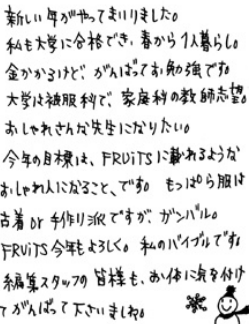 新しい年がやってまいりました。
私も大学に合格でき、春から1人暮らし。
金かかるけど、がんばってお勉強です。
大学は被服科で、家庭科の教師志望。
おしゃれさんな先生になりたい。
今年の目標は、FRUiTSに載れるような
おしゃれ人になること、です。もっぱら服は
古着or手作り派ですが、ガンバル。
FRUiTS今年もよろしく。私のバイブルです。
編集スタッフの皆様も、お体に気を付け
てがんばって下さいましね。